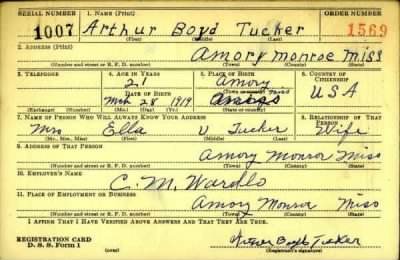 SERIAL NUMBER 1. NAME (Print) ORDER NUMBER
1007 Arthur Boyd Tucker 1569
(First) (Middle) (Last)
2. ADDRESS (Print)
Amory Monroe Miss
(Number and street or R. F. D. number) (Town) (County) (State)
3. TELEPHONE 4. AGE IN YEARS 5. PLACE OF BIRTH 6. COUNTRY OF CITIZENSHIP
21 Amory
DATE OF BIRTH (Town or county) Miss USA
Mch 28 1919
(Exchange) (Number) (Mo.) (Day) (Yr.) (State or country)
7. NAME OF PERSON WHO WILL ALWAYS KNOW YOUR ADDRESS 8. RELATIONSHIP OF THAT PERSON
Mrs Ella V Tucker Wife
(Mr., Mrs., Miss) (First) (Middle) (Last)
9. ADDRESS OF THAT PERSON
Amory Monroe Miss
(Number and street or R. F. D. number) (Town) (County) (State)
10. EMPLOYER'S NAME
C. M. Wardlo
11. PLACE OF EMPLOYMENT OR BUSINESS
Amory Monroe Miss
(Number and street or R. F. D. number) (Town) (County) (State)
I AFFIRM THAT I HAVE VERIFIED ABOVE ANSWERS AND THAT THEY ARE TRUE.
REGISTRATION CARD
D. S. S. Form 1 (over) Arthur Boyd Tucker
(Registrant's signature)